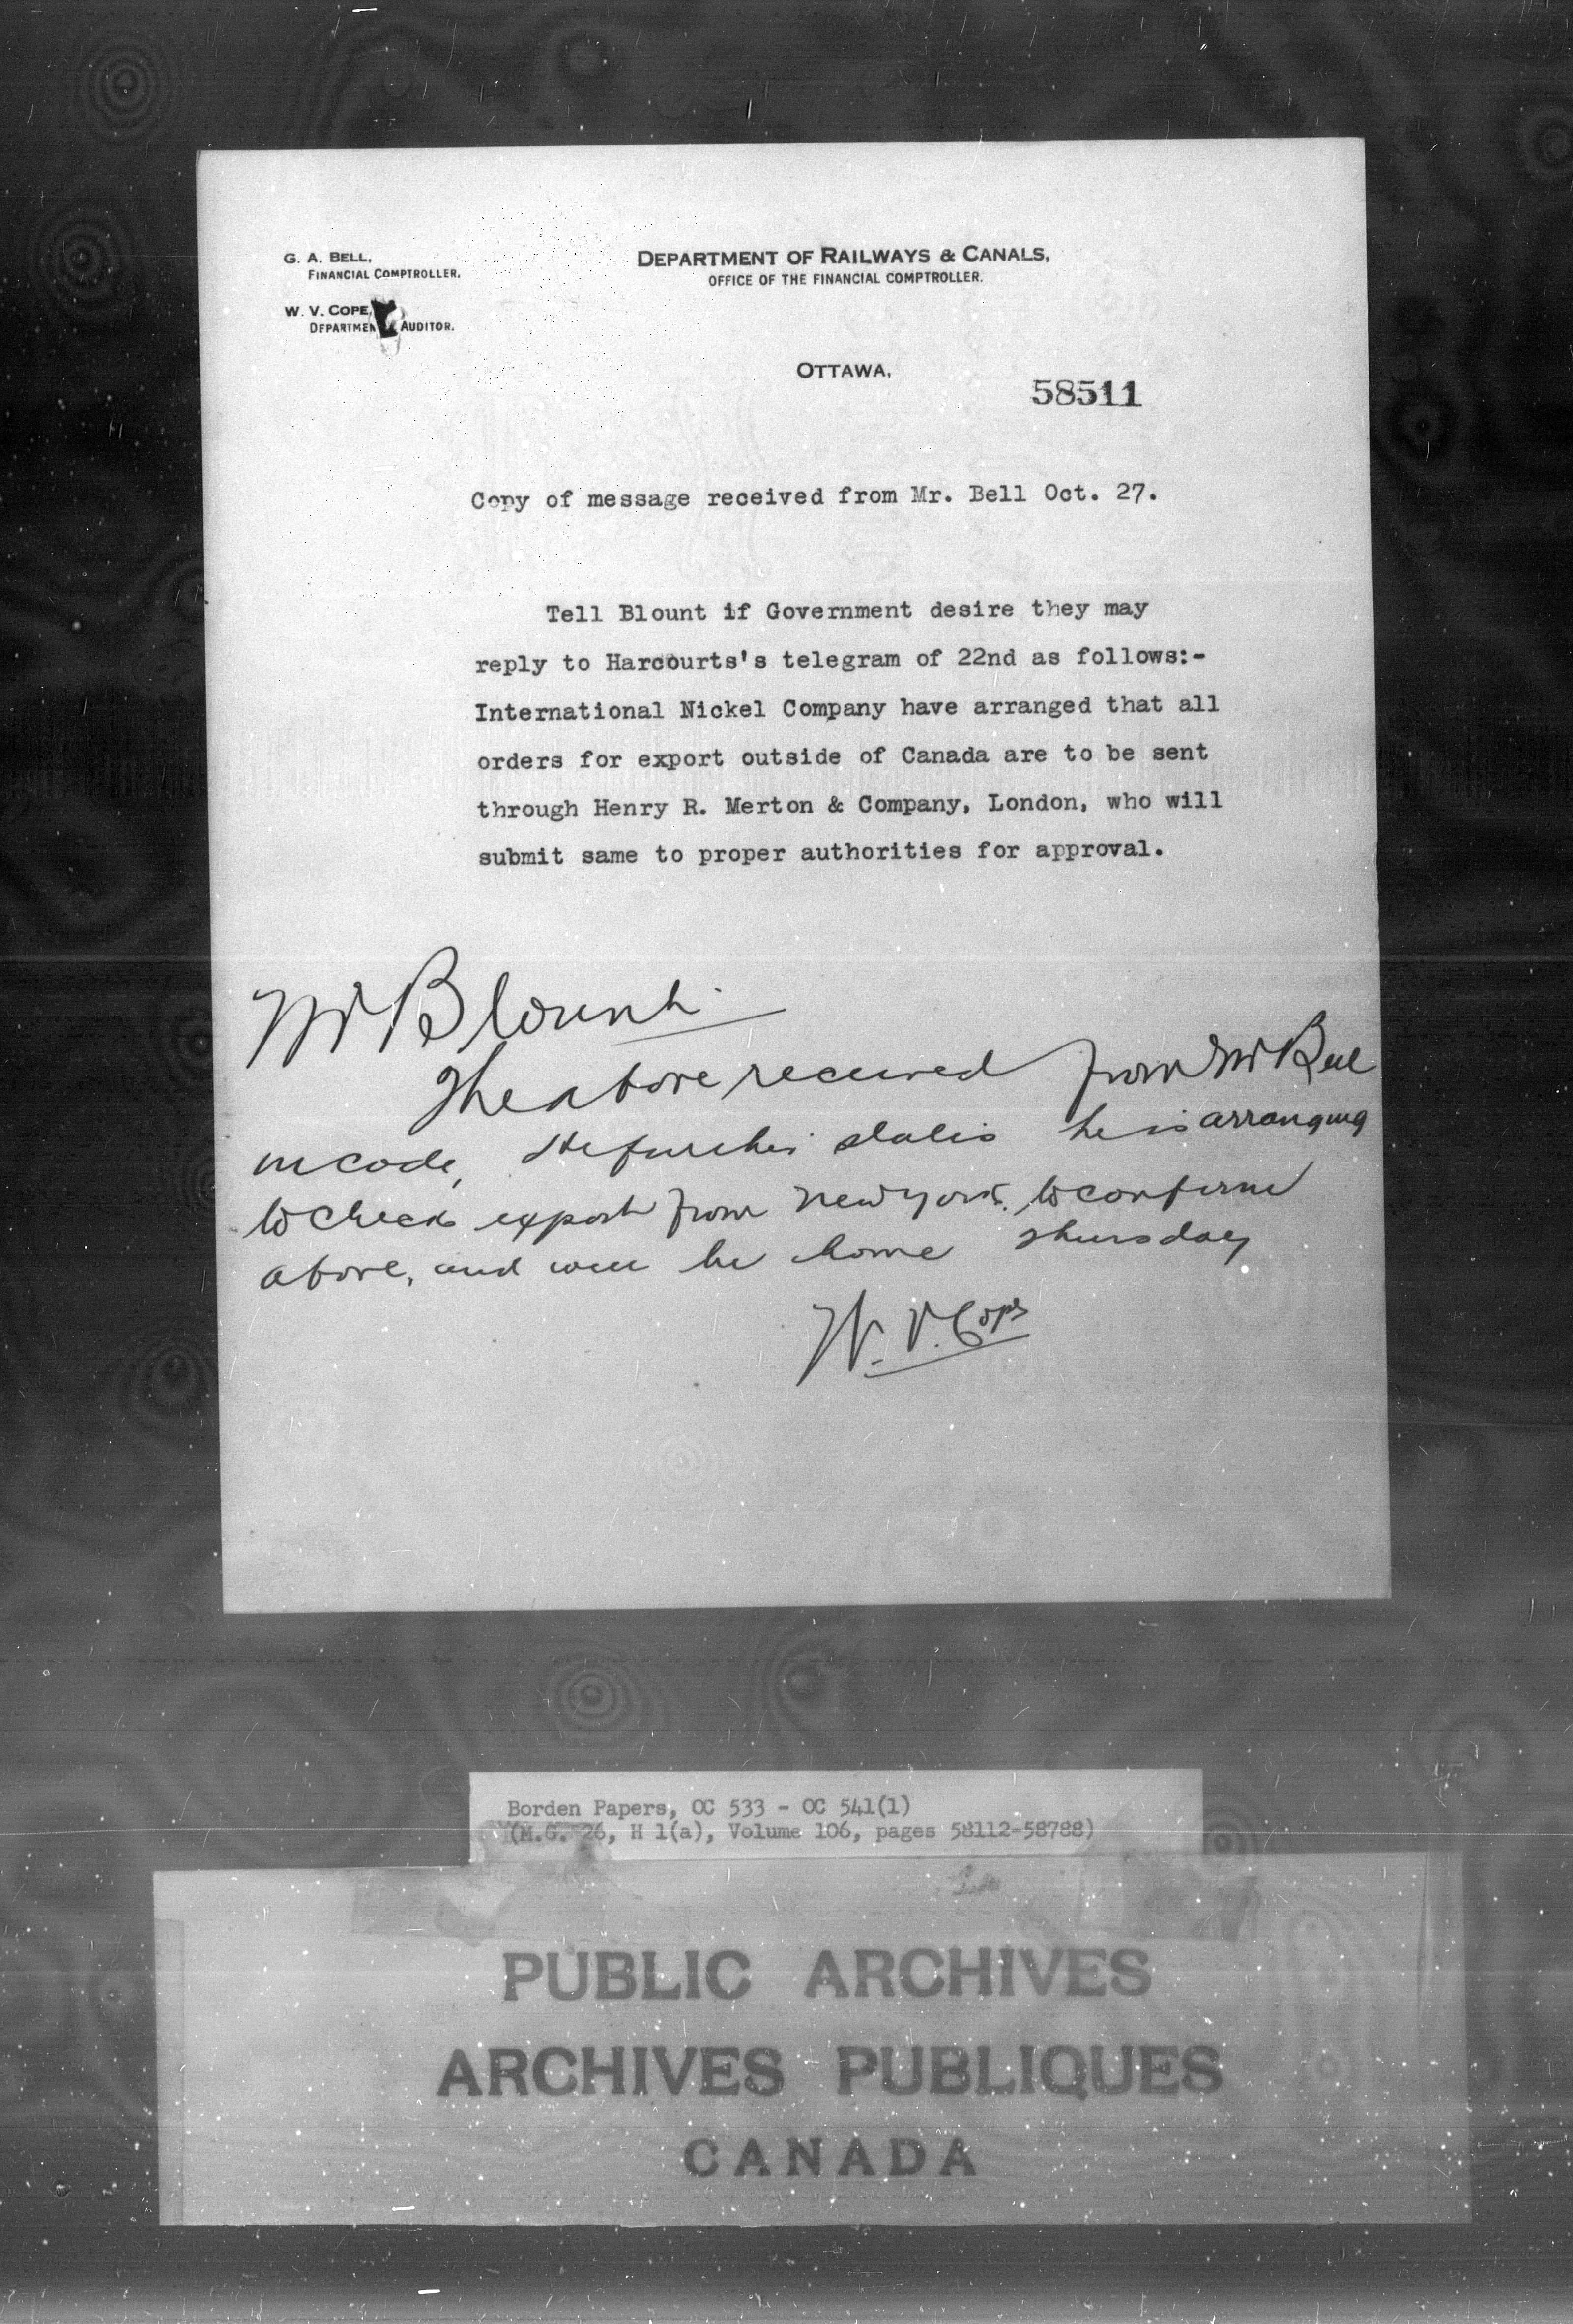 G. A. BELL,
FINANCIAL COMPTROLLER.
W. V. COPE,
DEPARTMEN AUDITOR.
DEPARTMENT OF RAILWAYS & CANALS,
OFFICE OF THE FINANCIAL COMPTROLLER.
OTTAWA,
58511
Copy of message received from Mr. Bell Oct. 27.
Tell Blount if Government desire they may
reply to Harcourts's telegram of 22nd as follows:-
International Nickel Company have arranged that all
orders for export outside of Canada are to be sent
through Henry R. Merton & Company, London, who will
submit same to proper authorities for approval.
Mr Blount.
The above received from Mr Bell
in code, He further states he is arranging
to check export from New York. to confirm
above, and will be home Thursday
W. V. Cope
Borden Papers, OC 533 - OC 541(1)
(M.G. 26, H 1(a), Volume 106, pages 58112-58788)
PUBLIC ARCHIVES
ARCHIVES PUBLIQUES
CANADA